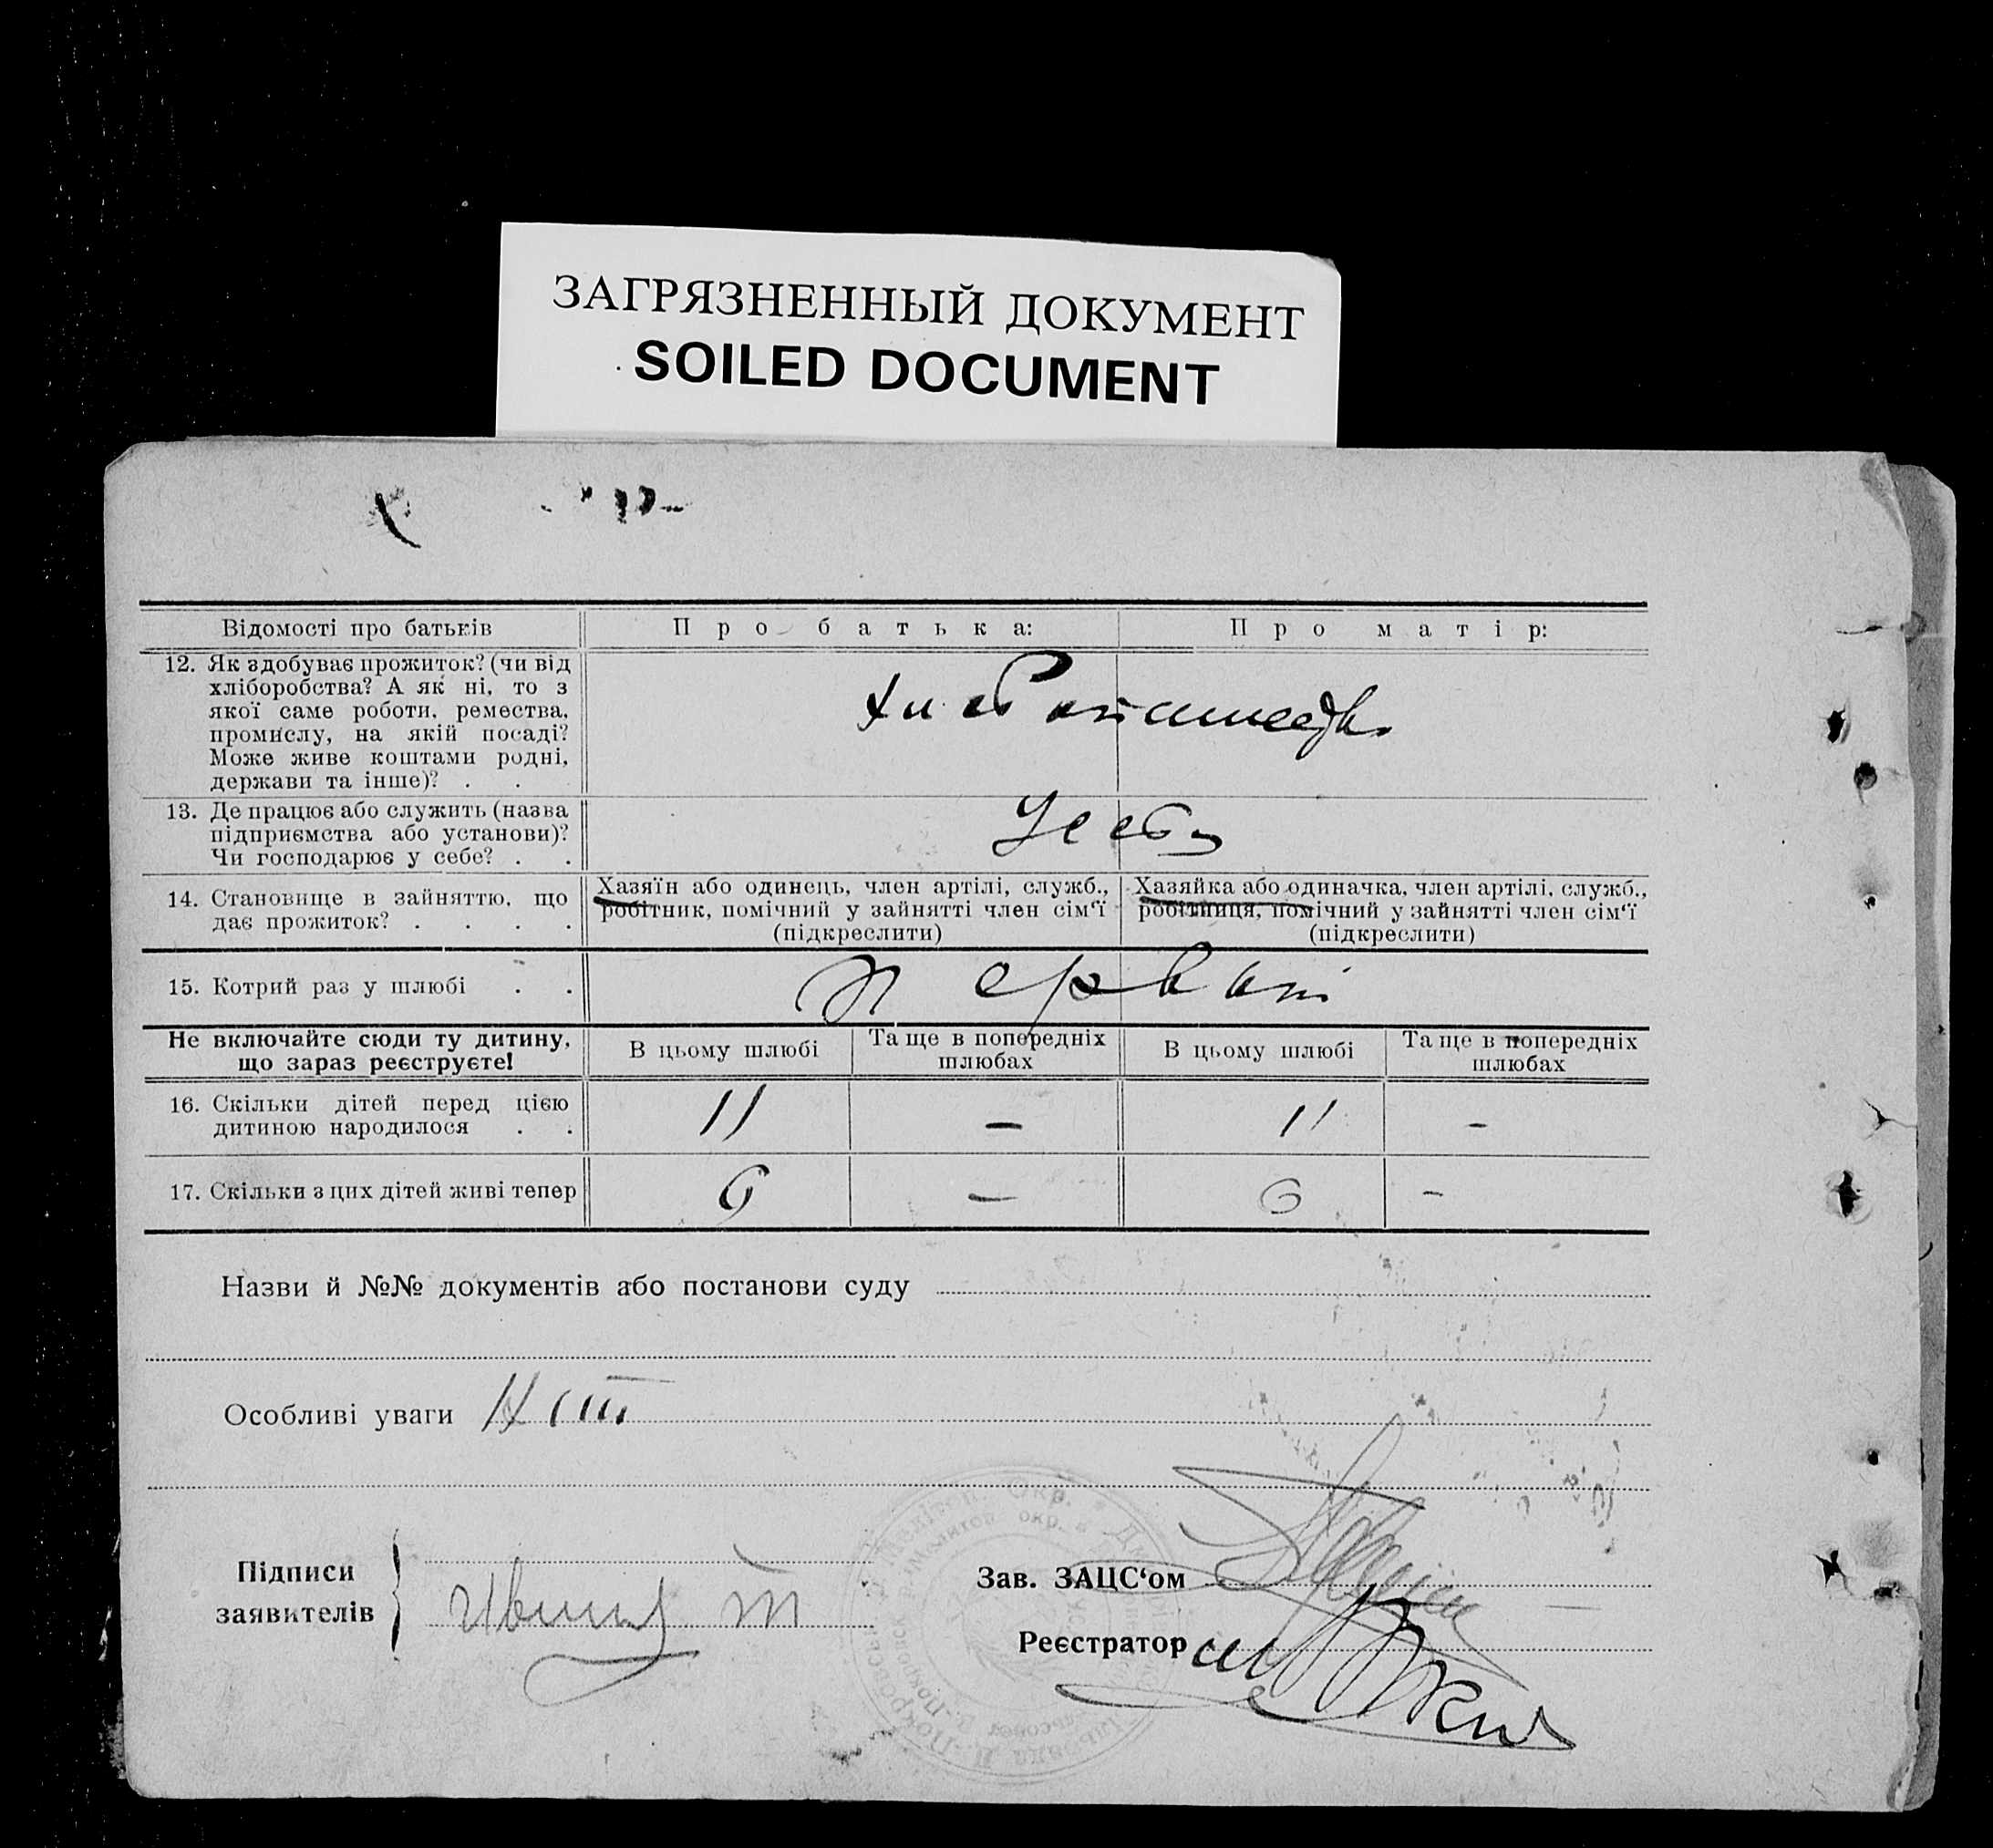 ЗАГРЯЗНЕННЫЙ ДОКУМЕНТ
SOILED DOCUMENT
Відомості про батьків
Про батька:
Про матір:
12. Як здобуває прожиток? (чи від
хліборобства? А як ні, то з
якої саме роботи, ремества,
промислу, на якій посаді?
Може живе коштами родні,
держави та інше)? . .
13. Де працює або служить (назва
підприємства або установи)?
Чи господарює у себе? . .
У себе
14. Становище в зайняттю, що
дає прожиток? . . . .
Хазяїн або одинець, член артілі, служб.,
робітник, помічний у зайнятті член сім‘ї
(підкреслити)
Хазяйка або одиначка, член артілі, служб.,
робітниця, помічний у зайнятті член сім‘ї
(підкреслити)
15. Котрий раз у шлюбі . .
Не включайте сюди ту дитину,
що зараз реєструєте!
В цьому шлюбі
Та ще в попередніх
шлюбах
В цьому шлюбі
Та ще в попередніх
шлюбах
16. Скільки дітей перед цією
дитиною народилося . .
11 – 11 -
17. Скільки з цих дітей живі тепер
6 — 6 -
Назви й №№ документів або постанови суду
Особливі уваги
Підписи
заявителів
Зав. ЗАЦС‘ом
Реєстратор